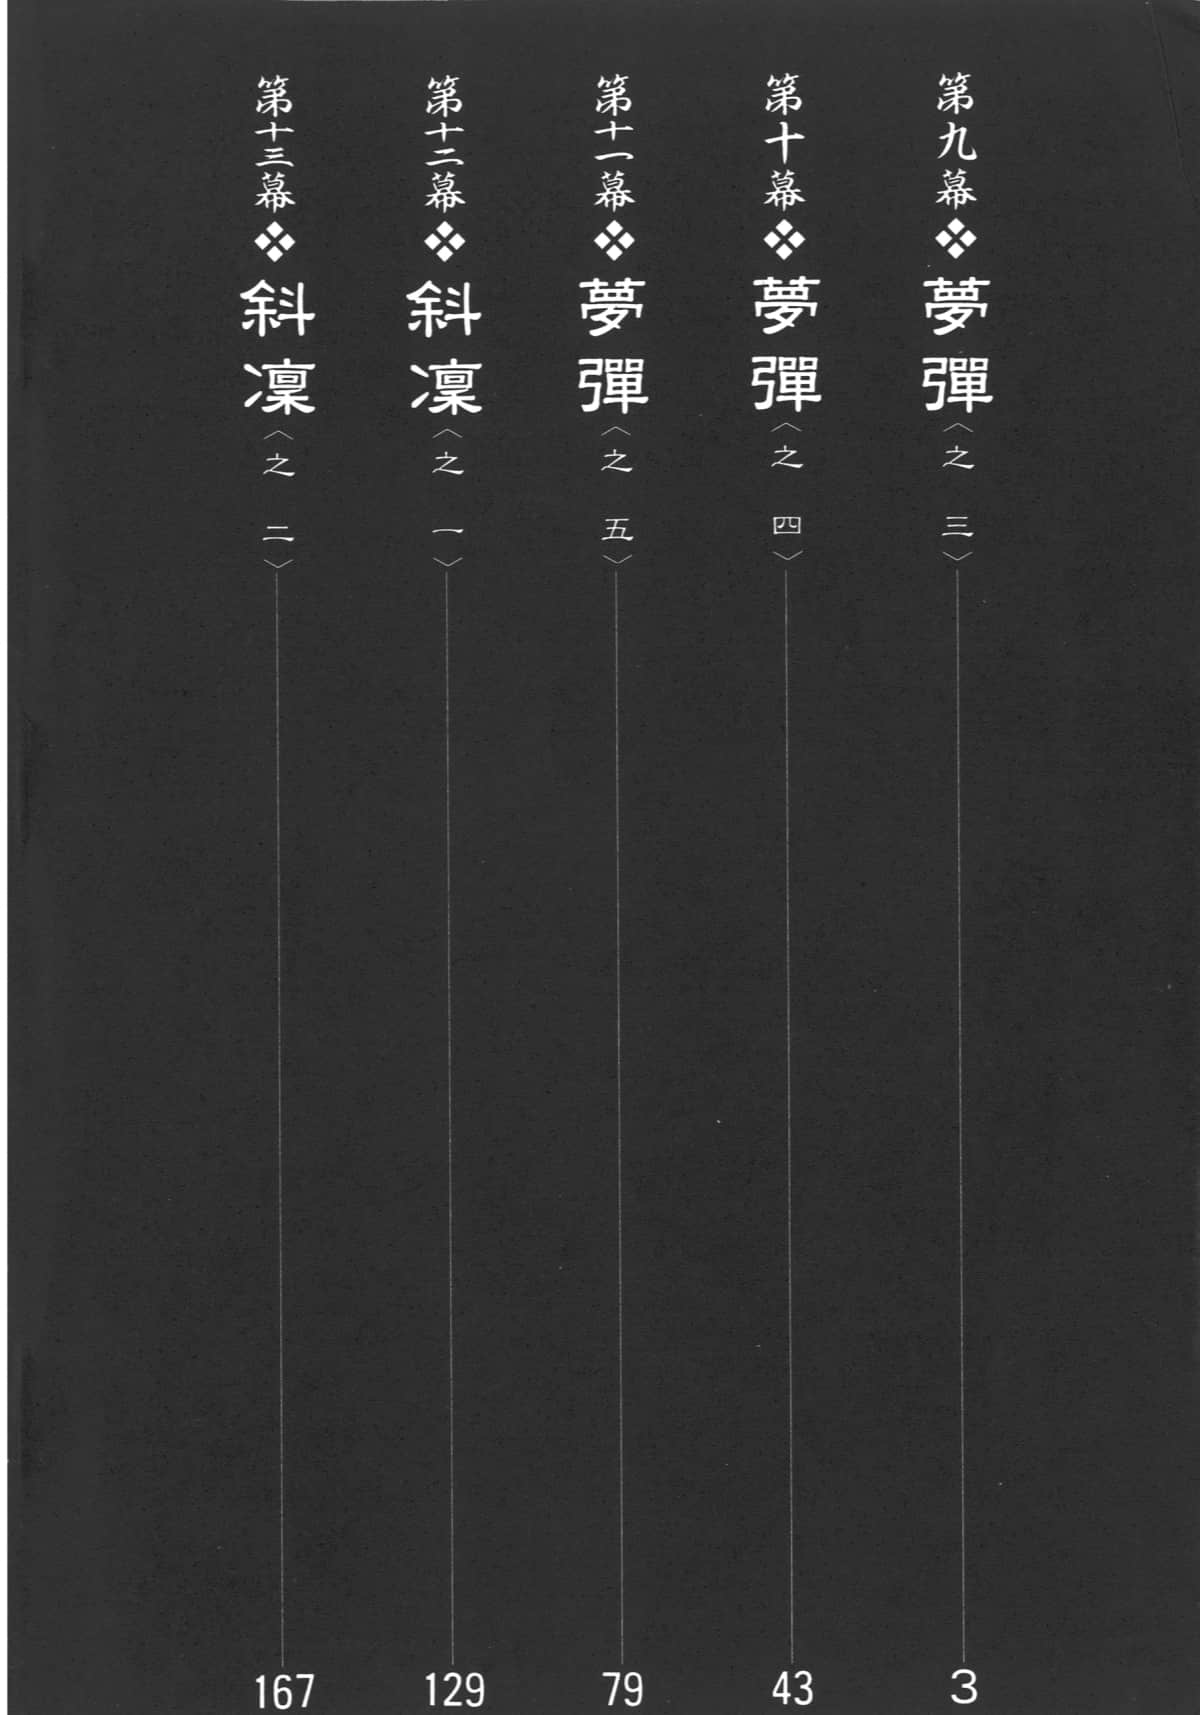 第九幕❖夢彈〈之三〉3
第十幕❖夢彈〈之四〉43
第十一幕❖夢彈〈之五〉79
第十二幕❖斜凜〈之一〉129
第十三幕❖斜凜〈之二〉167